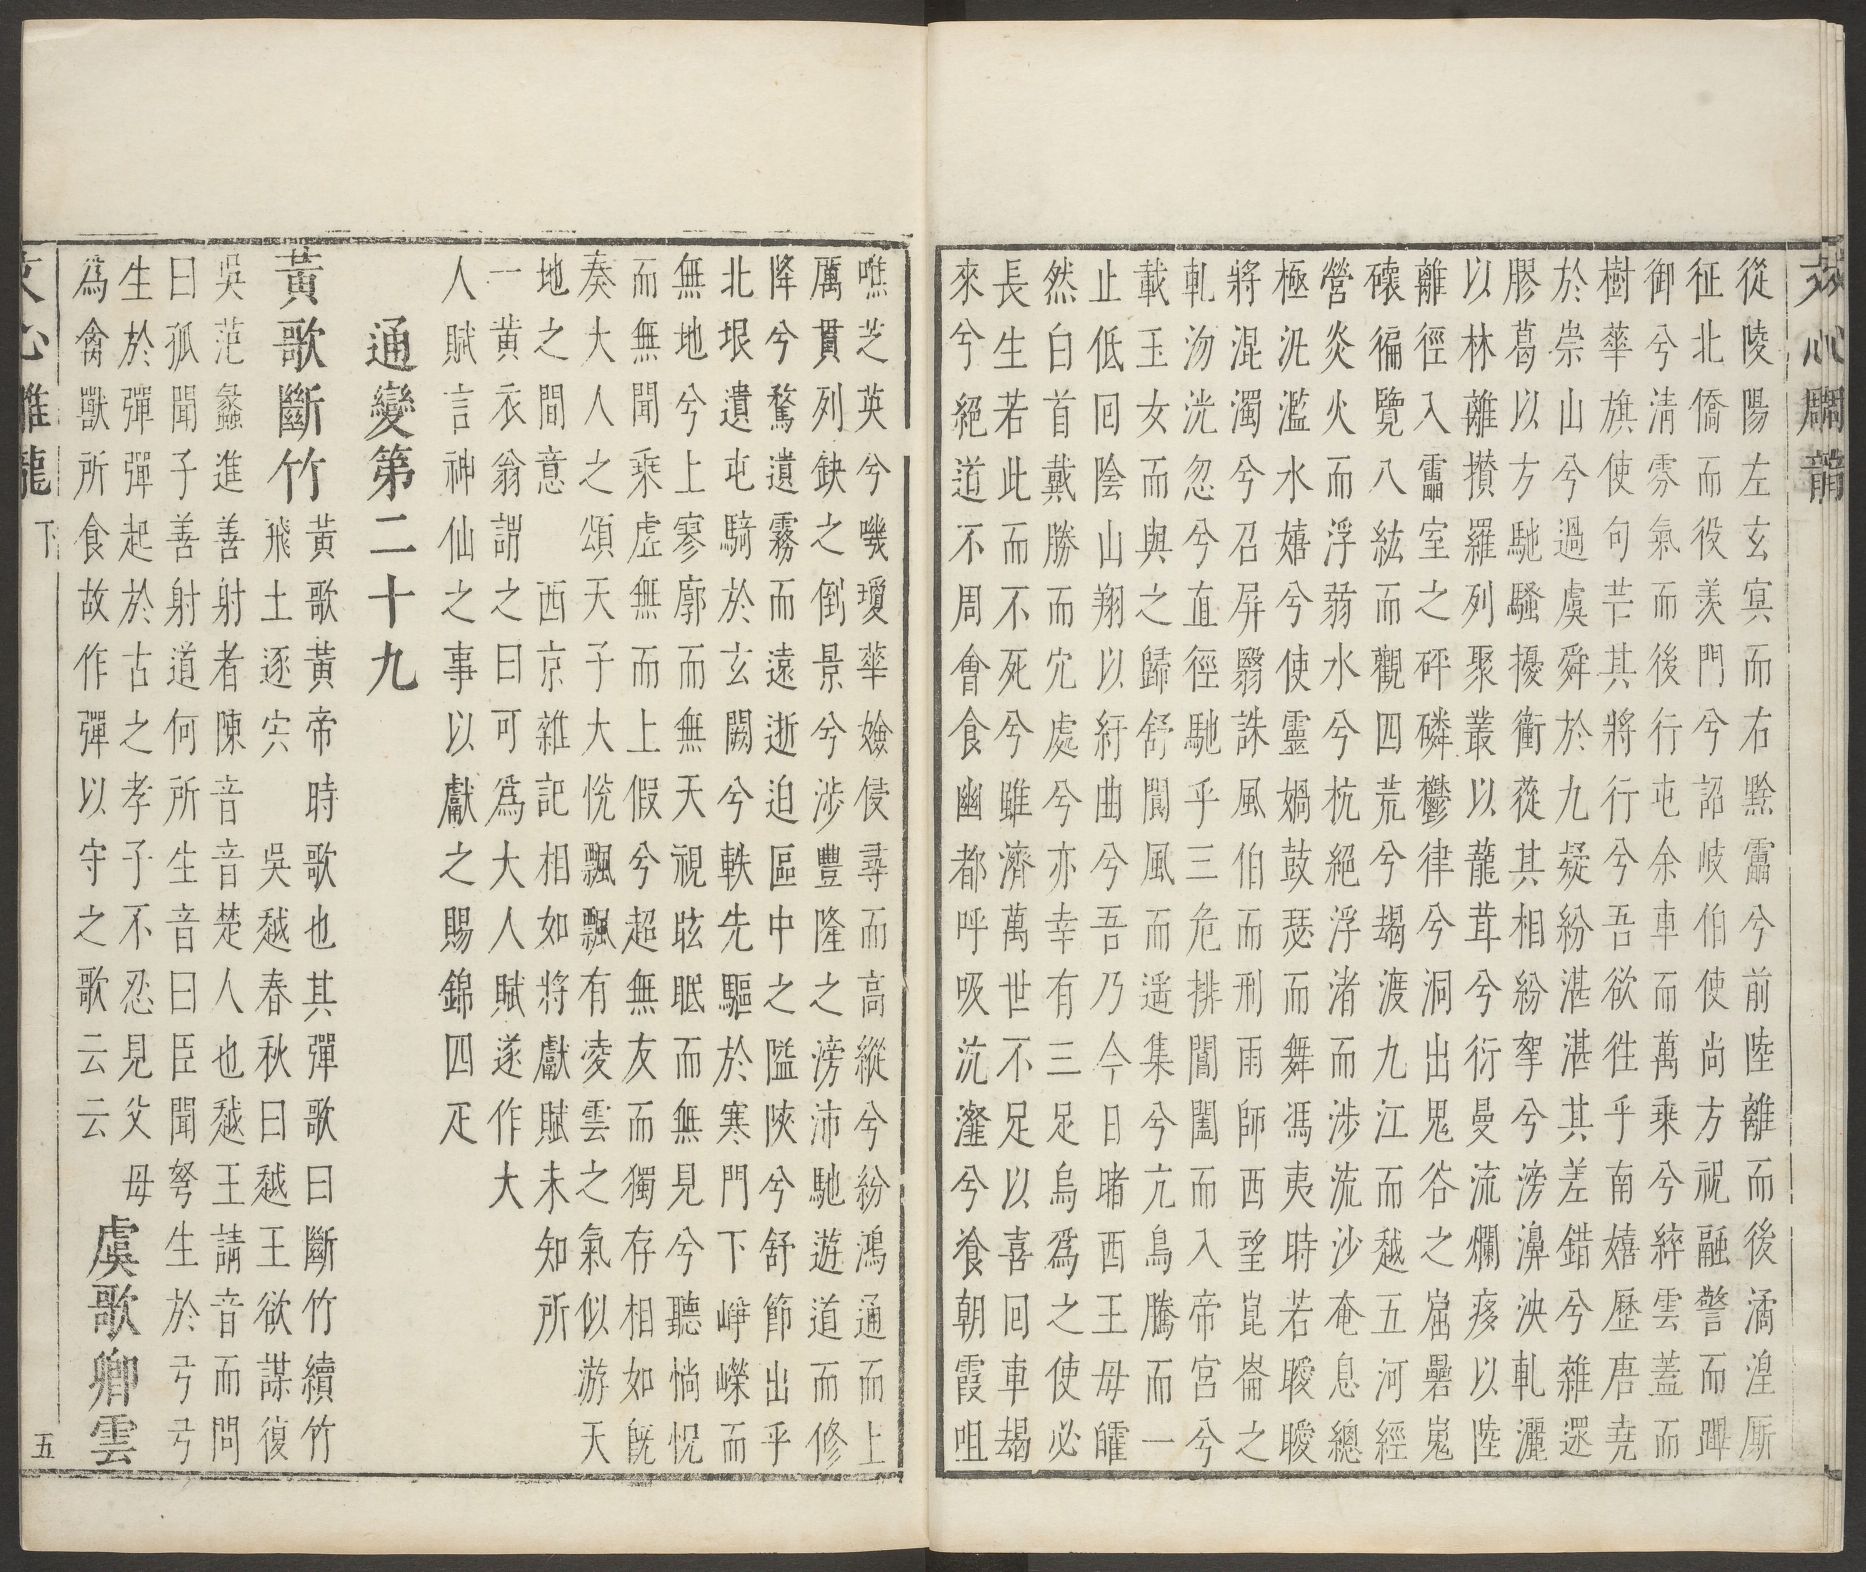 文心雕龍
從陵陽左玄冥而右黔靁兮前陸離而後潏湟厮
征北僑而役羨門兮詔岐伯使尚方祝融警而蹕
御兮淸雰氣而後行屯余車而萬乘兮綷雲蓋而
樹華旗使句芒其將行兮吾欲徃乎南嬉歷唐堯
於崇山兮過虞舜於九疑紛湛湛其差錯兮雜遝
膠葛以方馳騷擾衝蓯其相紛挐兮滂濞泱軋灑
以林離攅羅列聚叢以蘢茸兮衍曼流爛痑以陸
離徑入靁室之砰磷鬱律兮洞出鬼谷之崫礨嵬
磈徧覽八紘而觀四荒兮朅渡九江而越五河經
營炎火而浮弱水兮杭絕浮渚而涉流沙奄息總
極汎濫水嬉兮使靈媧鼓瑟而舞馮夷時若曖曖
將混濁兮召屏翳誅風伯而刑雨師西望崑崙之
軋沕洸忽兮直徑馳乎三危排閶闔而入帝宮兮
載玉女而與之歸舒閬風而遥集兮亢烏騰而一
止低囘陰山翔以紆曲兮吾乃今日睹西王母皬
然白首戴勝而穴處兮亦幸有三足烏爲之使必
長生若此而不死兮雖濟萬世不足以喜回車朅
來兮絕道不周會食幽都呼吸沆瀣兮飡朝霞咀
噍芝英兮嘰瓊華嬐侵尋而高縱兮紛鴻涌而上
厲貫列缺之倒景兮涉豐隆之滂沛馳遊道而修
降兮騖遺霧而遠逝迫區中之隘陜兮舒節出乎
北垠遺屯騎於玄闕兮軼先驅於寒門下崢嶸而
無地兮上寥廓而無天視眩眠而無見兮聽惝怳
而無聞乘虛無而上假兮超無友而獨存相如旣
奏大人之頌天子大悅飄飄有凌雲之氣似游天
地之間意 西京雜記相如將獻賦未知所
一黃衣翁謂之曰可爲大人賦遂作大
人賦言神仙之事以獻之賜錦四疋
通變第二十九
黃歌斷竹 黃歌黃帝時歌也其彈歌曰斷竹續竹
飛土逐宍 吳越春秋曰越王欲謀復
吳范蠡進善射者陳音音楚人也越王請音而問
曰孤聞子善射道何所生音曰臣聞弩生於弓弓
生於彈彈起於古之孝子不忍見父母
為禽獸所食故作彈以守之歌云云 虞歌卿雲
文心雕龍 下 五